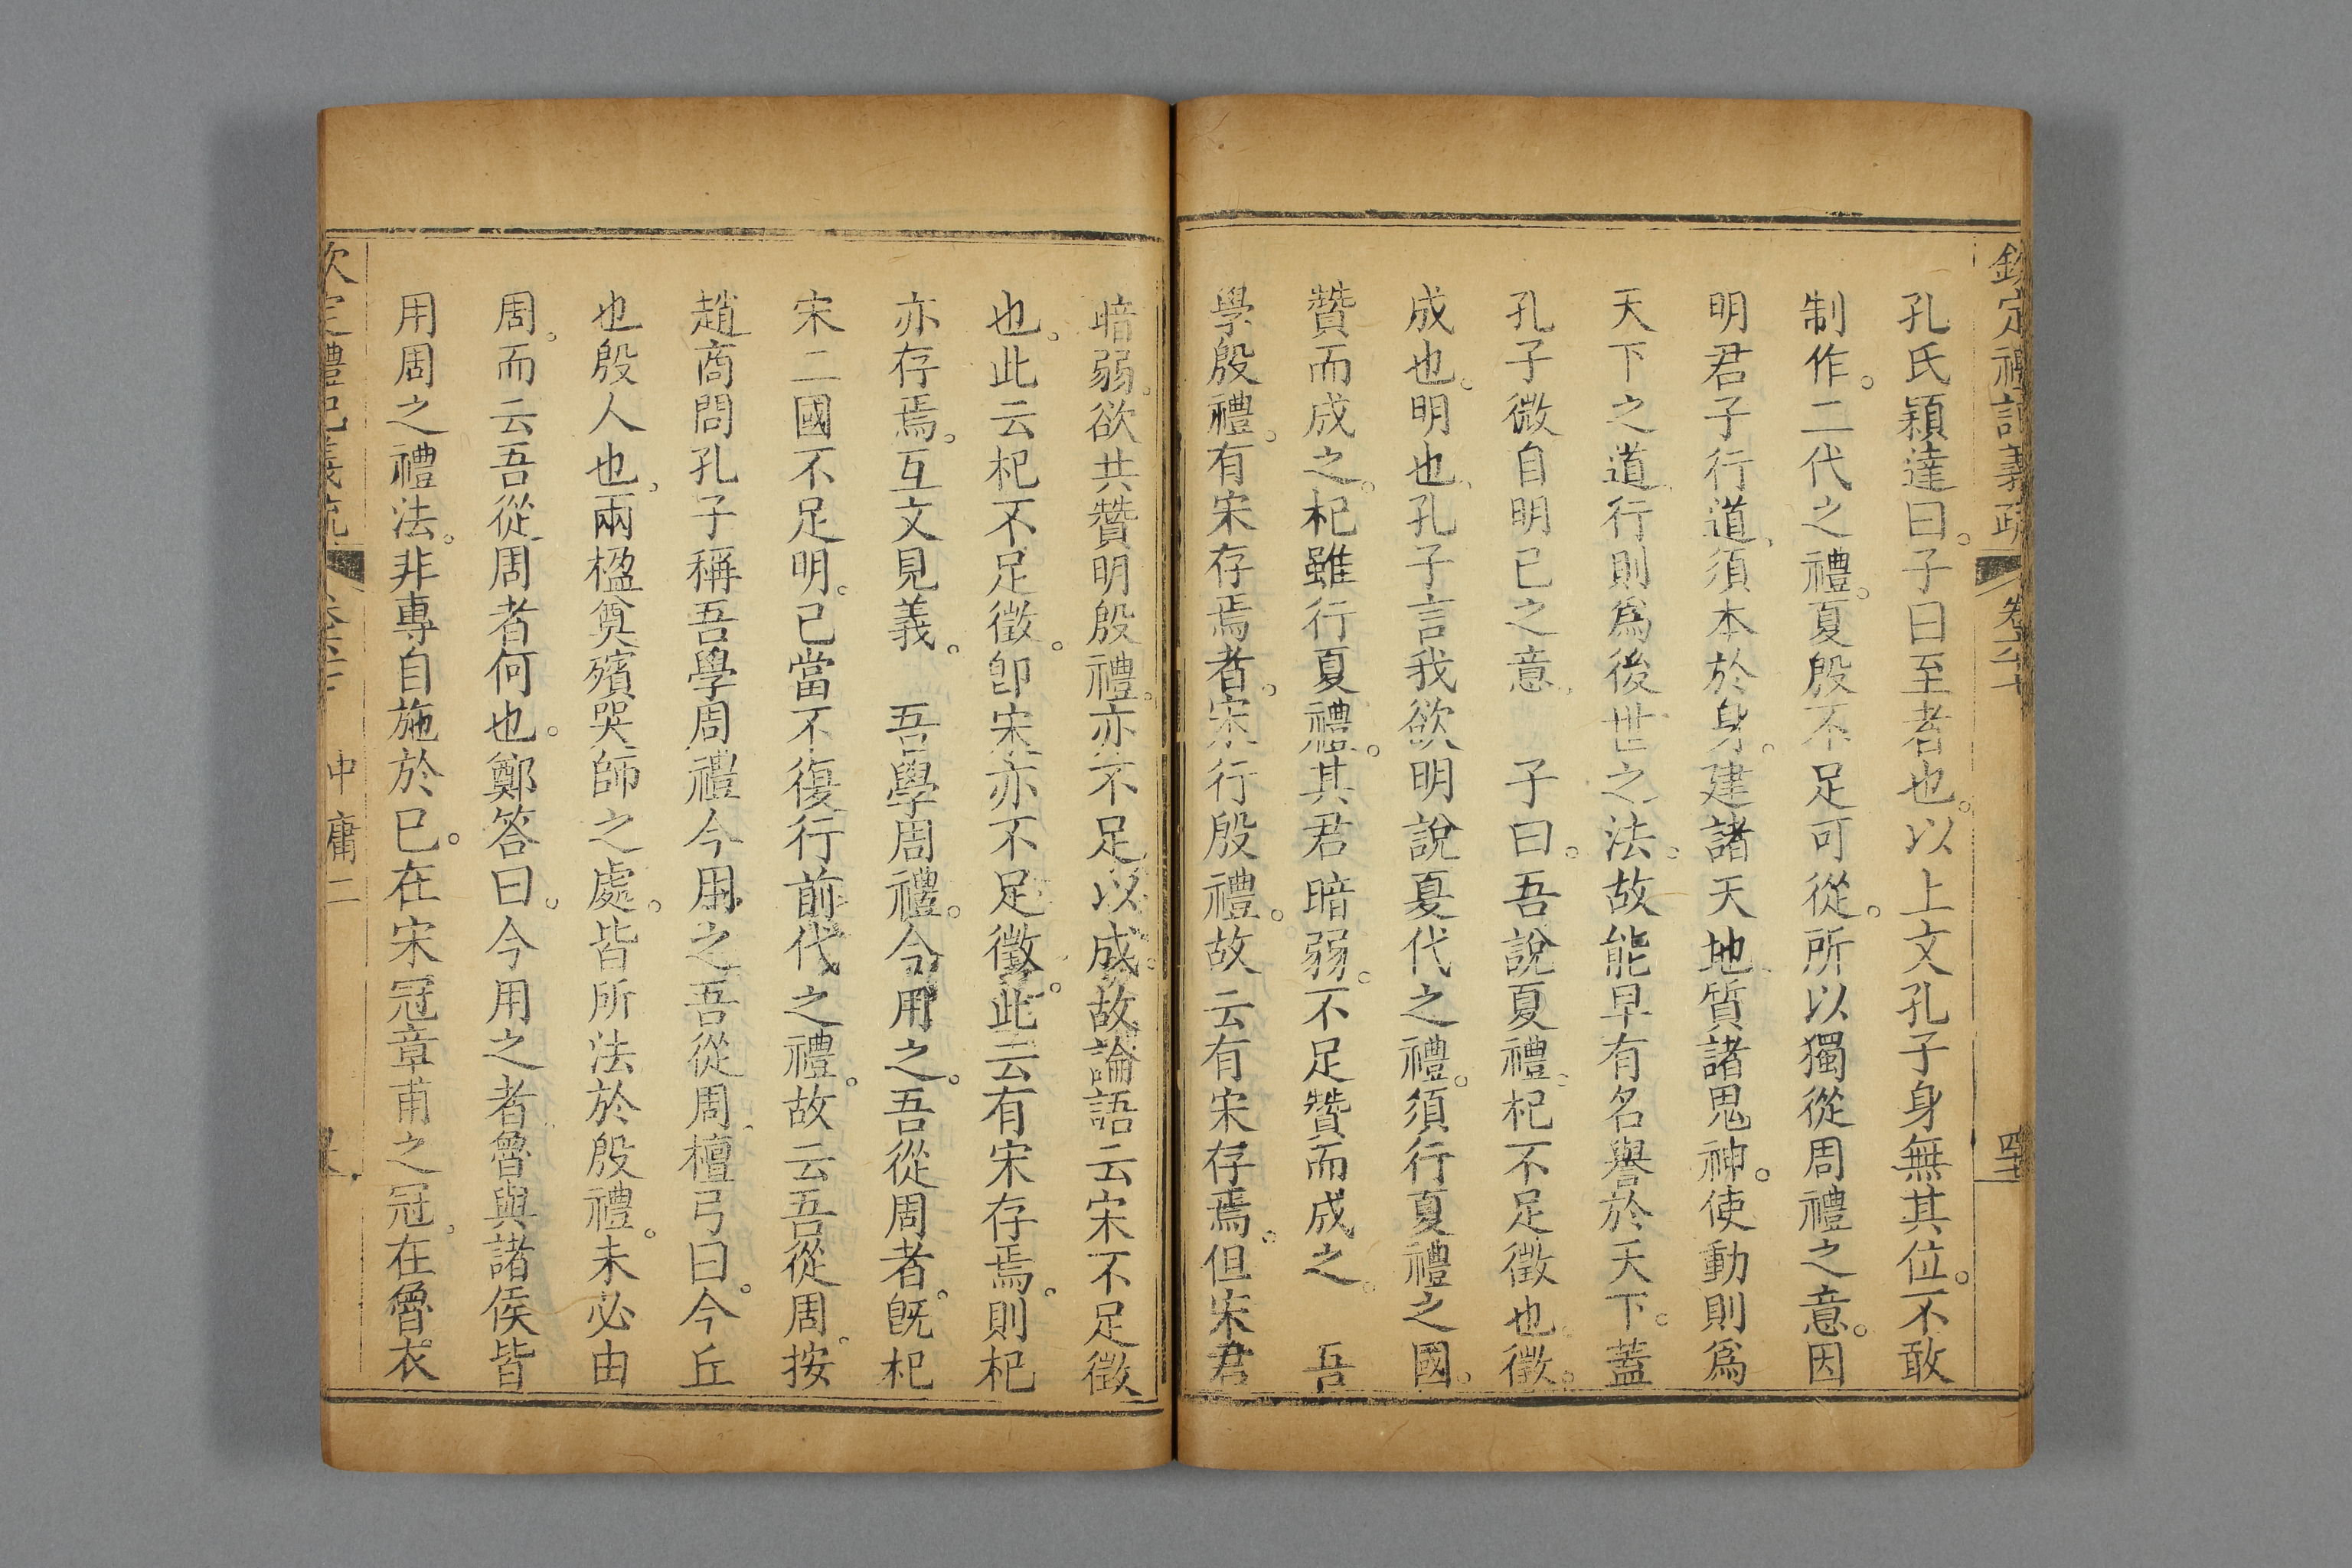 欽定禮記義疏 卷六十 四十五
孔氏穎達曰。子曰至者也。以上文孔子身無其位。不敢
制作。二代之禮。夏殷不足可從。所以獨從周禮之意。因
明君子行道、須本於身。建諸天地、質諸鬼神。使動則爲
天下之道、行則爲後世之法。故能早有名譽於天下。蓋
孔子微自明己之意、 子曰。吾說夏禮。杞不足徵也。徵。
成也。明也、孔子言我欲明說夏代之禮。須行夏禮之國。
贊而成之。杞雖行夏禮。其君暗弱。不足贊而成之。 吾
學殷禮。有宋存焉者。宋行殷禮。故云有宋存焉。但宋君
暗弱。欲共贊明殷禮。亦不足以成。故論語云宋不足徵
也。此云杞不足徵。卽宋亦不足徵。此云有宋存焉。則杞
亦存焉。互文見義。 吾學周禮。今用之。吾從周者。旣杞
宋二國不足明。己當不復行前代之禮。故云吾從周。按
趙商問孔子稱吾學周禮今用之吾從周、檀弓曰。今丘
也殷人也、兩楹奠殯哭師之處。皆所法於殷禮。未必由
周。而云吾從周者何也。鄭答曰。今用之者魯與諸侯皆
用周之禮法。非專自施於己。在宋冠章甫之冠。在魯衣
欽定禮記義疏 中庸二